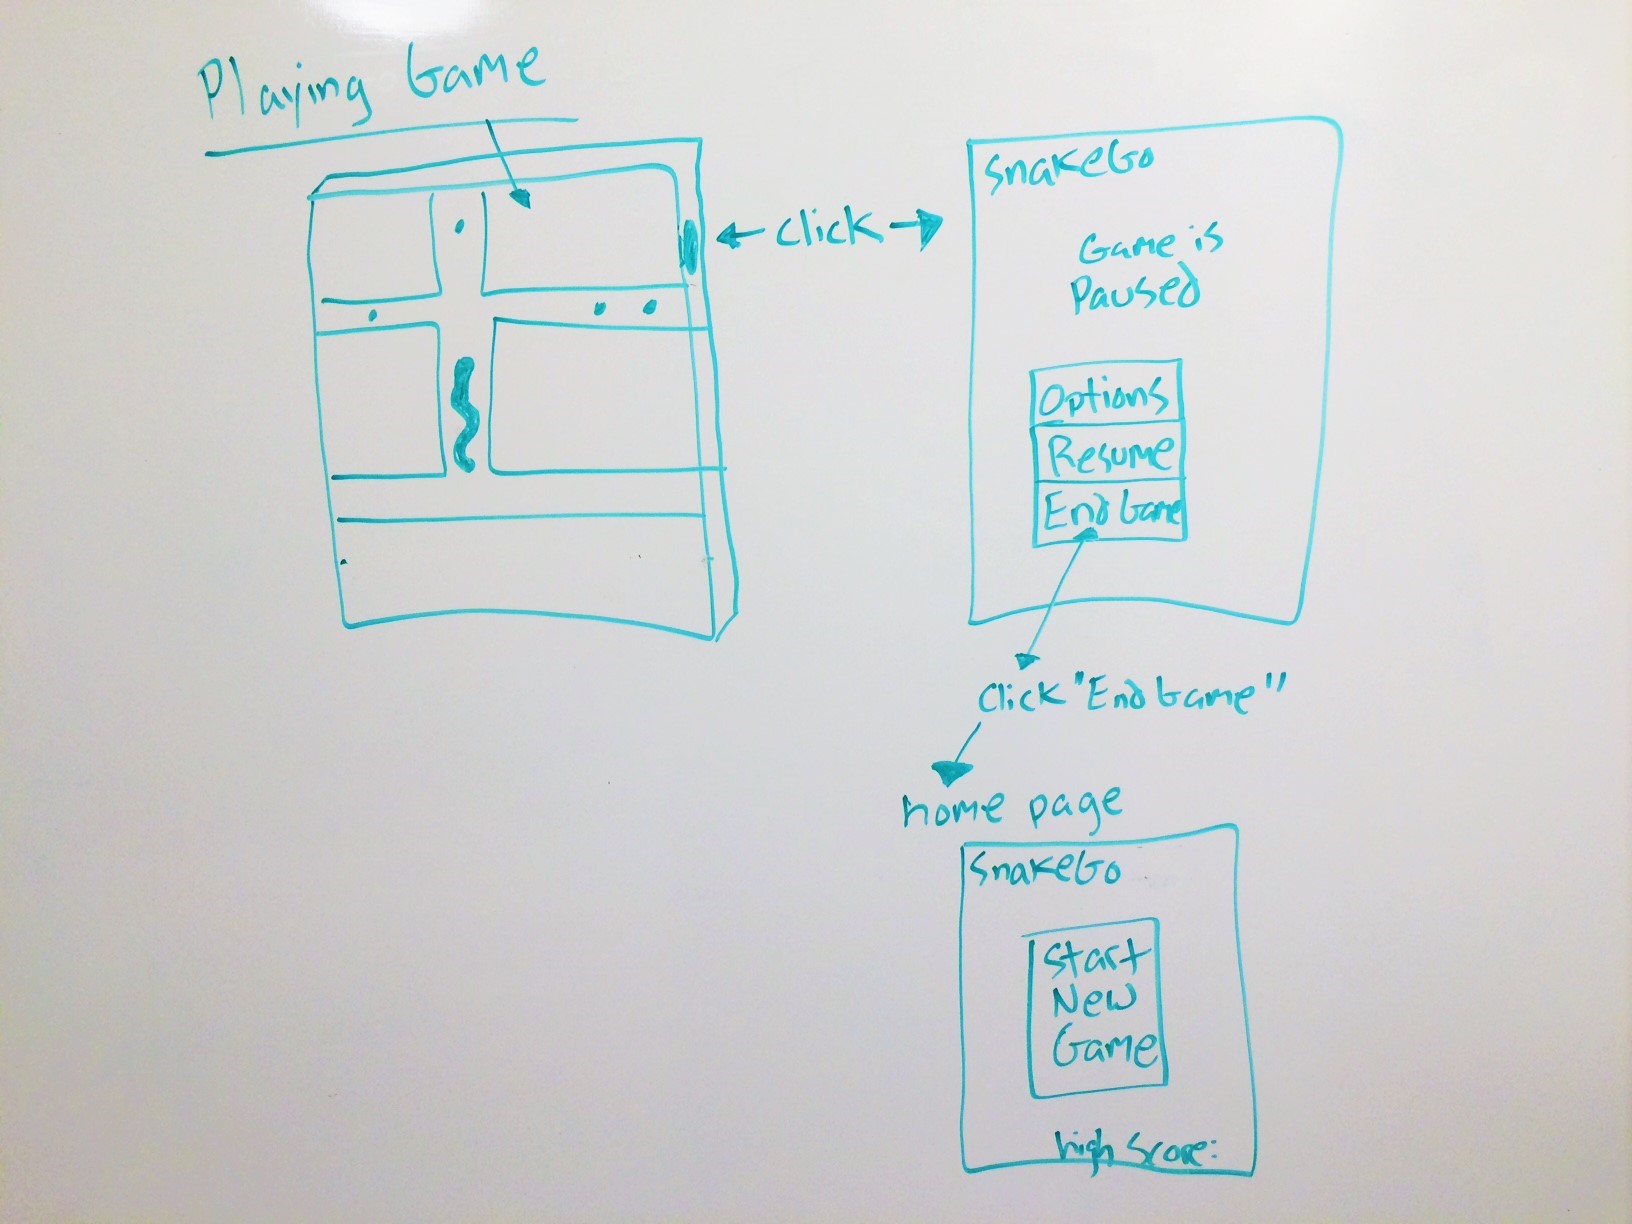 Playing Game
Click
SnakeGo
Game is
Paused
Options
Resume
End Game
Click "End Game"
home page
SnakeGo
Start
New
Game
high Score: